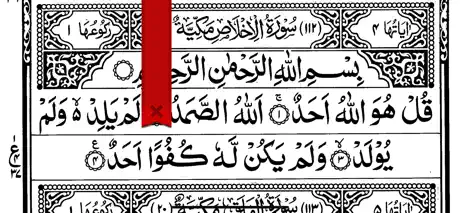 اٰيَاتُهَا ٤ (١١٢) سُوْرَةُ الْاِخْلَاصِ مَكِّيَّةٌ رُكُوْعُهَا ١
بِسْمِ اللّٰهِ الرَّحْمٰنِ الرَّحِيْمِ
قُلْ هُوَ اللّٰهُ اَحَدٌ ۚ ۝١ اَللّٰهُ الصَّمَدُ لَمْ يَلِدْ ۙ وَلَمْ
يُوْلَدْ ۙ ۝٣ وَلَمْ يَكُنْ لَّهٗ كُفُوًا اَحَدٌ ۝٤
اٰيَاتُهَا ٥ (١١٣) سُوْرَةُ (٢٠) رُكُوْعُهَا ١